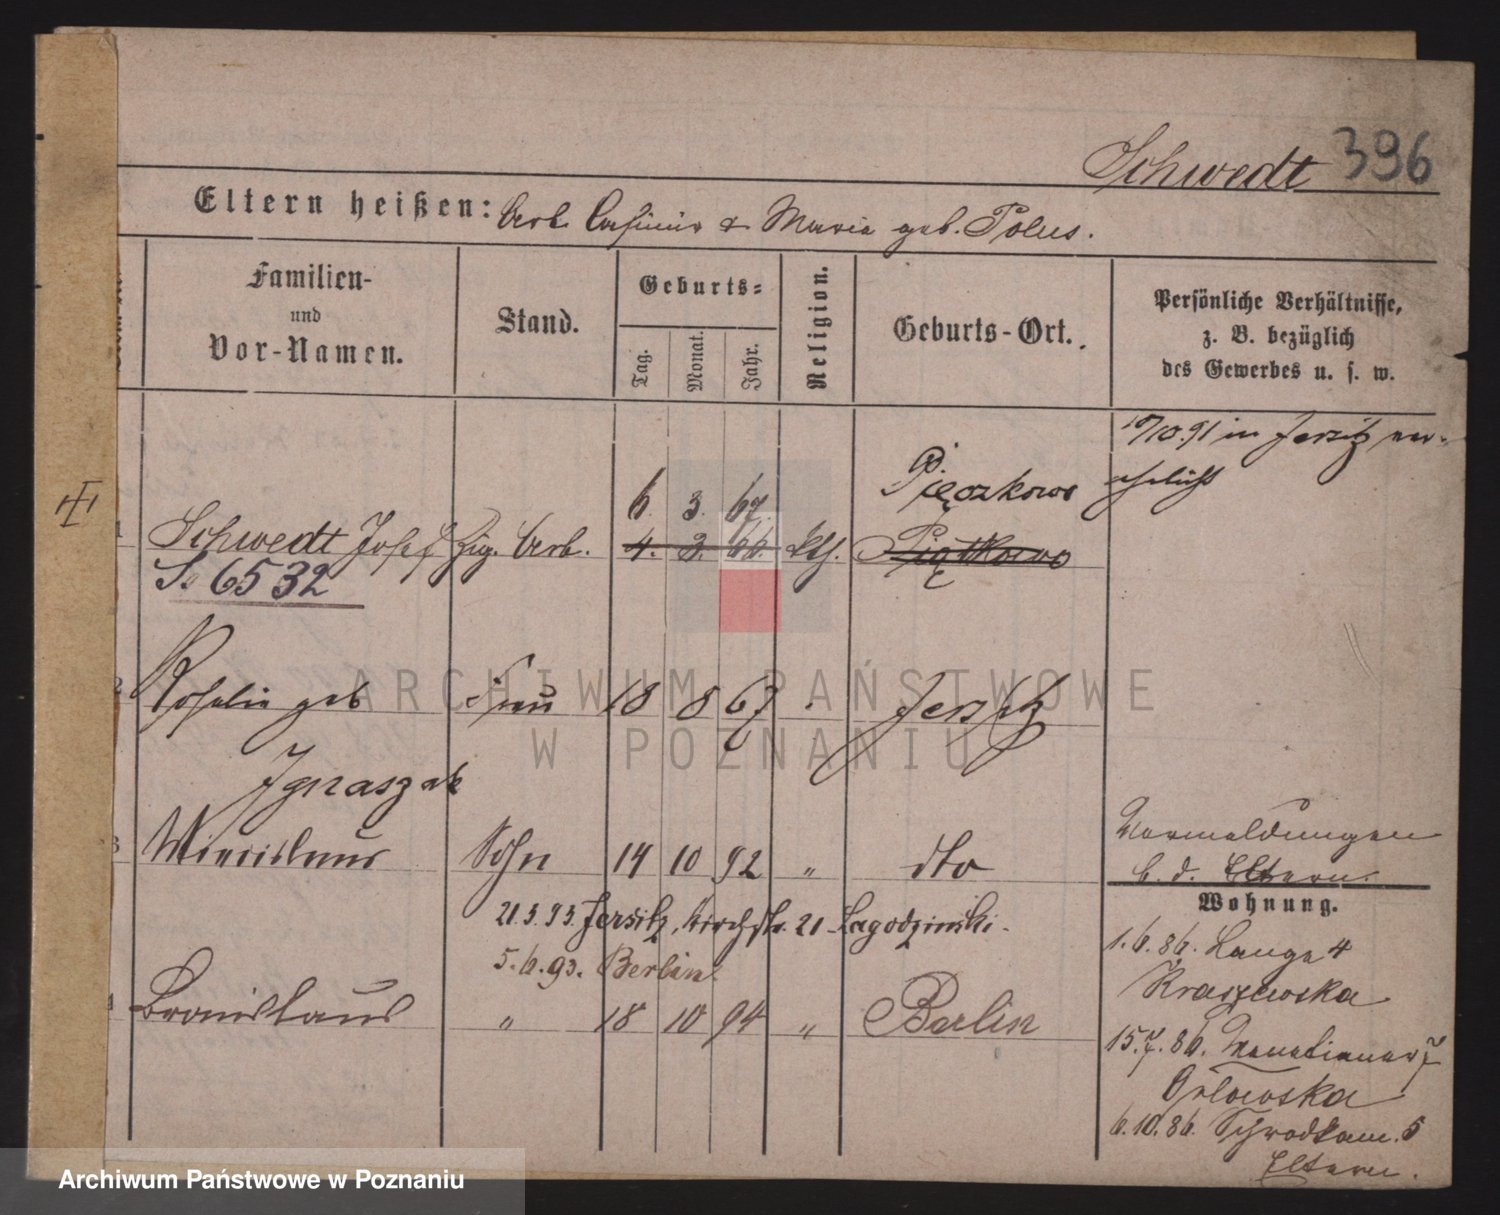 Schwedt 396
Eltern heißen: Arb. Casimir & Maria geb. Polus.
Familien-
und
Vor-Namen.
Stand.
Geburts-
Tag. Monat. Jahr.
Religion.
Geburts-Ort.
Persönliche Verhältnisse,
z. B. bezüglich
des Gewerbes u. s. w.
10/10.91 in Jersitz ver-
ehelicht
6. 3. 67. Pięczkowo
1 Schwedt Josef Zig. Arb. 4. 3. 66. kth. Piątkowo
S. 6532
2 Rosalie geb Frau 18 8 67 Jersitz
Ignaszak
3 Miecislaus Sohn 14 10 92 " dto
Vormeldungen
b. d. Eltern.
21.3.93. Jersitz, Kirchstr. 21 Lagodzinski.
5.6.93. Berlin.
4 Bronislaus " 18 10 94 " Berlin
Wohnung.
1.6.86. Lange 4
Kraszewska
15.7.86. Venetianer 7
Orlowska
6.10.86. Schrodkam. 5
Eltern.
ARCHIWUM PAŃSTWOWE
W POZNANIU
Archiwum Państwowe w Poznaniu